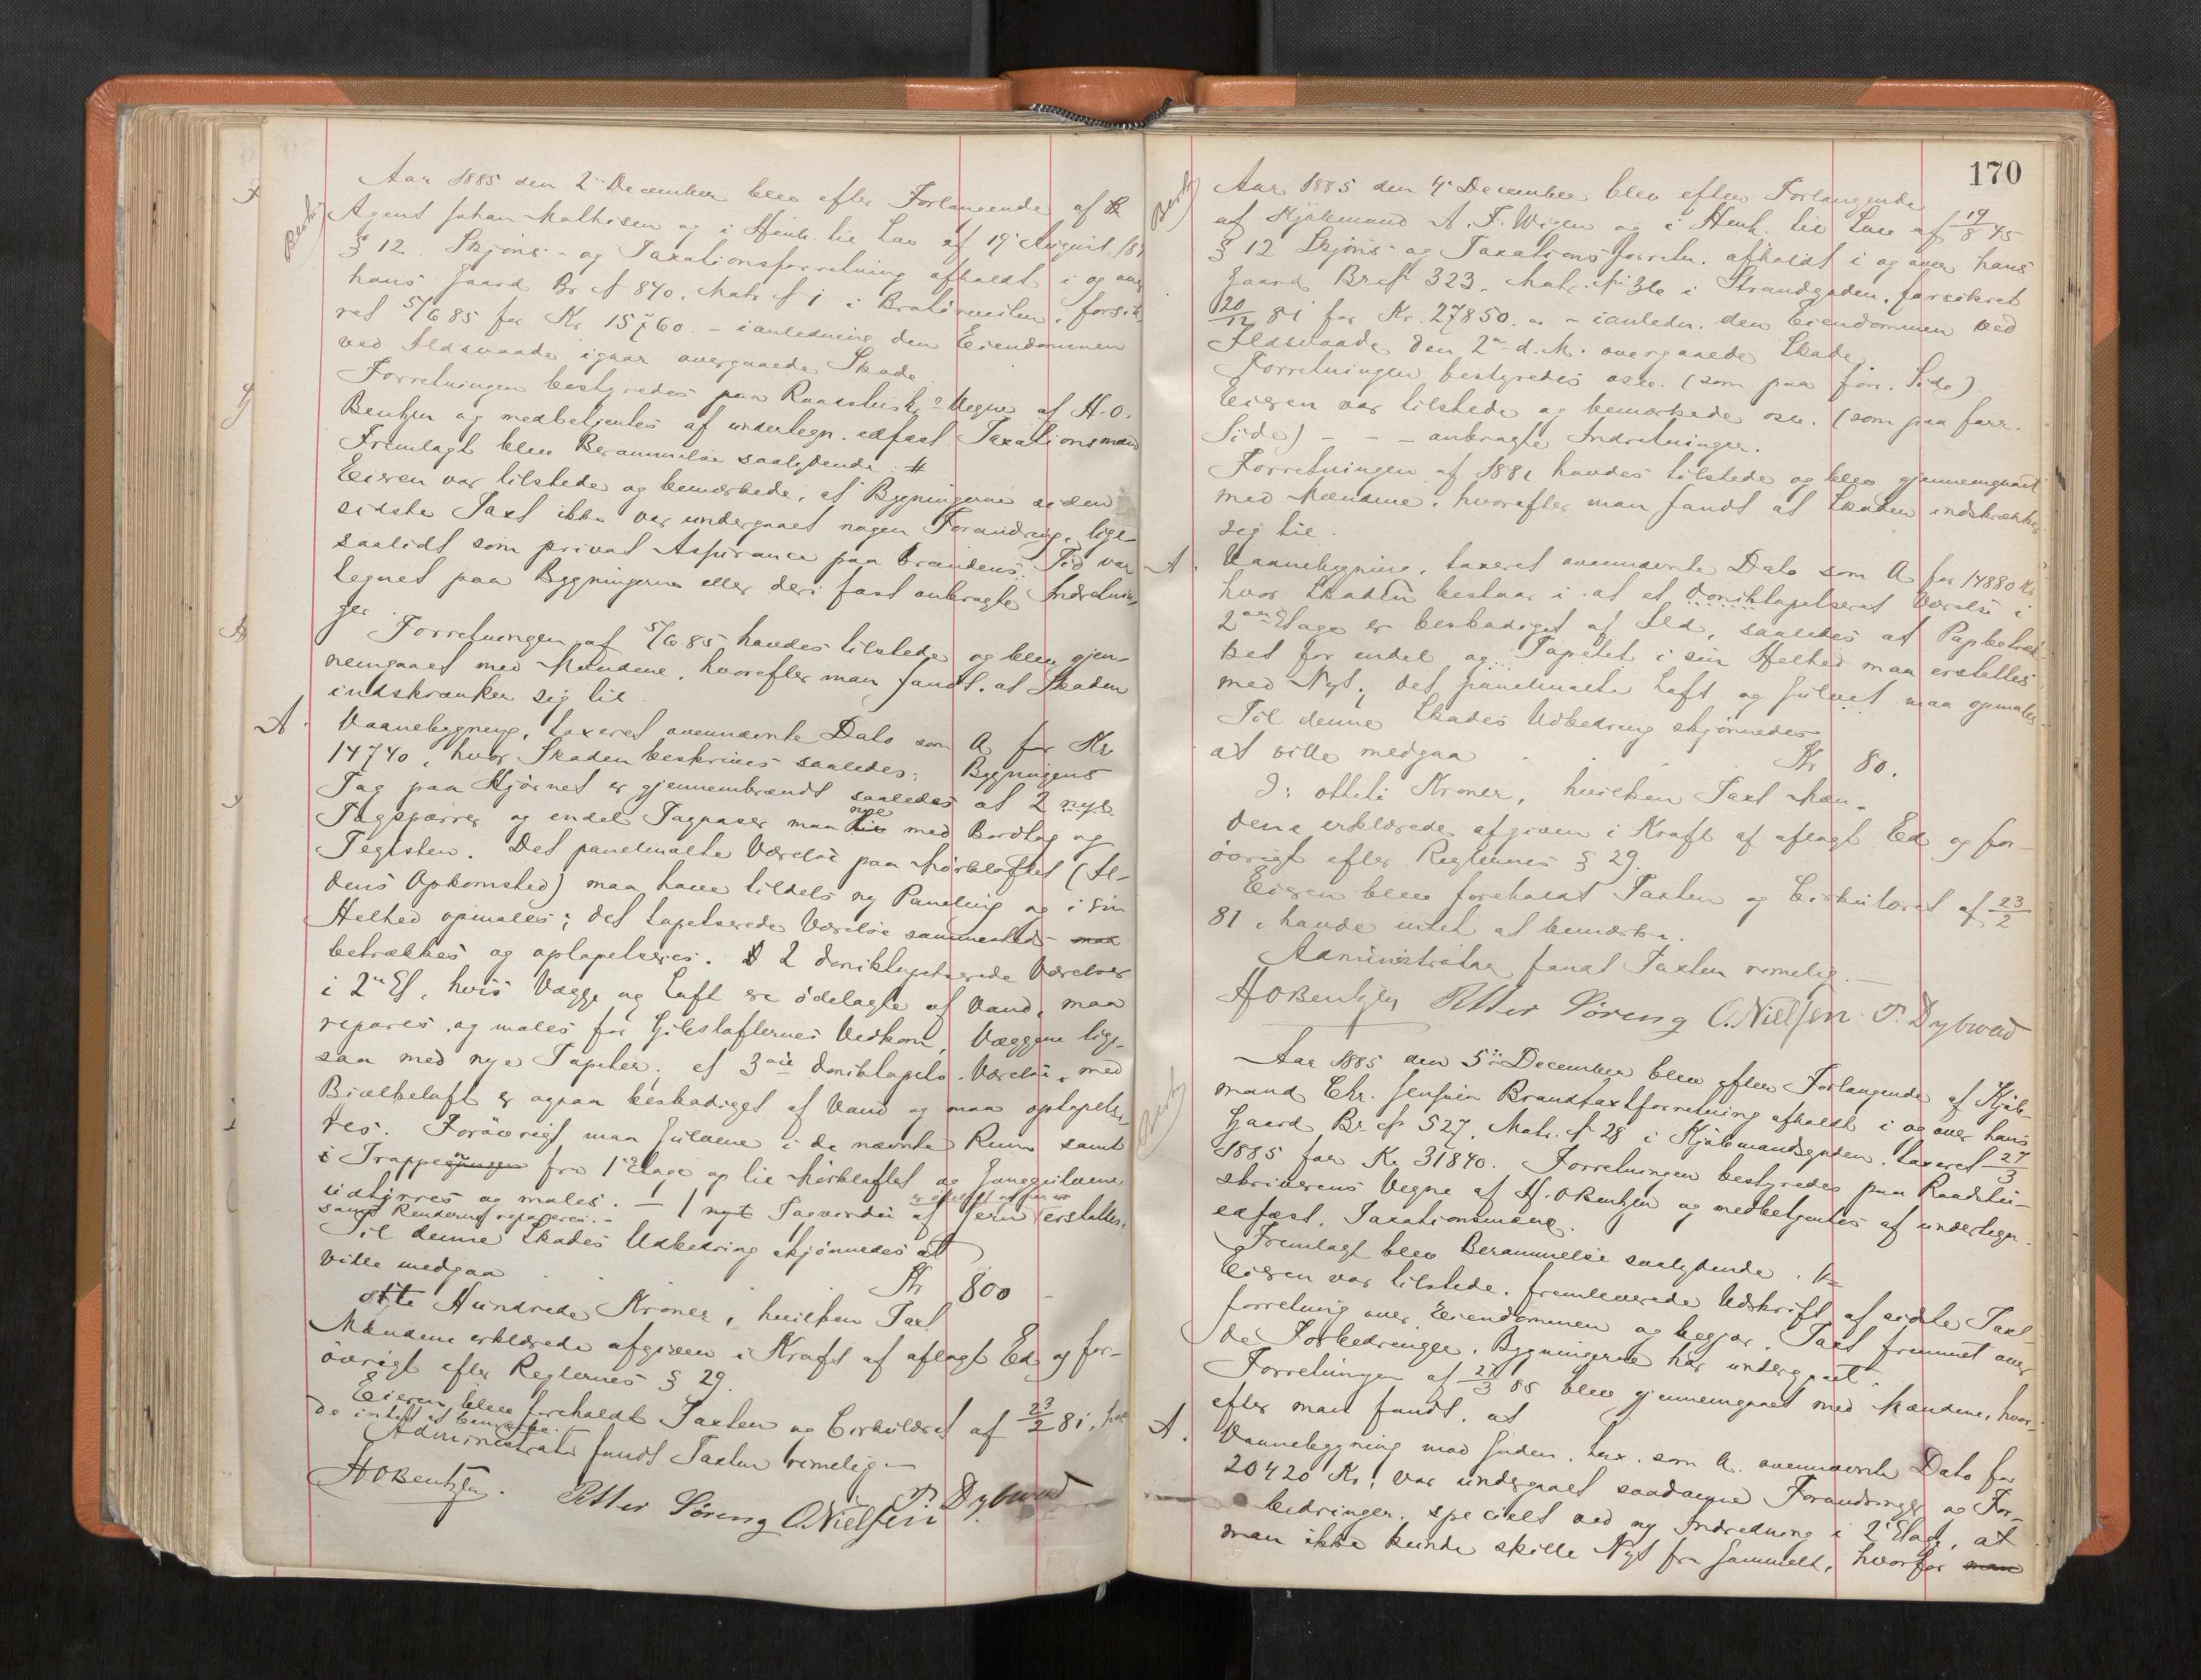 Aar 1885 den 2' December blev efter Forlangende af
Agent Johan Mathisen og i Henh. til Lov af 19' August 1845
§ 12 Skjøns- og Taxationsforretning afholdt i og over
hans Gaard Br № 840. Matr. № 1 i Bratørveiten, forsik-
ret 5/6 85 for Kr 15760. - i anledning den Eiendommen
ved Ildsvaade igaar overgaaede Skade.
Forretningen bestyredes paa Raadstuskr.s Vegne af H. O.
Bentzen og medbetjentes af undertegn. edfæst. Taxationsmænd
Fremlagt blev Berammelse saalydende: #
Eieren var tilstede og bemærkede, at Bygningerne siden
sidste Taxt ikke var undergaaet nogen Forandring, lige-
saalidt som privat Assurance paa Brandens Tid var
tegnet paa Bygningerne eller deri fast anbragte Indretnin-
ger.
Forretningen af 5/6 85 havdes tilstede og blev gjen-
nemgaaet med Mændene, hvorefter man fandt, at Skaden
indskrænker sig til
A. Vaanebygning, taxeret ovennævnte Dato som A for Kr
14740, hvor Skaden beskrives saaledes: Bygningens
Tag paa Hjørnet er gjennembrændt saaledes at 2 nye
Tagsparrer og endel Tagraser maa nye med Bordtag og
Teglsten. Det panelmalte Værelse paa Mørkloftet (Il-
dens Opkomsted) maa have tildels ny Paneling og i sin
Helhed opmales; det tapetserede Værelse sammesteds maa
betrækkes og optapetseres. 2 doniktapetserede Værelser
i 2' Et, hvis Vægge og Loft ere ødelagte af Vand, maa
repares, og males for Gibslofternes Vedkom, Væggene lige-
saa med nye Tapeter; et 3die doniktapets. Værelse, med
Bjælkeloft er ogsaa beskadiget af Vand og maa optapetse-
res. Forøvrigt maa Gulvene i de nævnte Rum samt
i Trappegangen fra 1' Etage og til Mørkloftet og Ganggulvene
udtørres og males. - 1 nyt Tagvindu af Jern erstattes,
samt Renderne repareres. -
Til denne Skades Udbedring skjønnedes at
ville medgaa . . . Kr 800 -
otte Hundrede Kroner, hvilken Taxt
Mændene erklærede afgiven i Kraft af aflagt Ed og for-
øvrigt efter Reglernes § 29.
Eieren blev foreholdt Taxten og Cirkulæret af 23/2 81, hav-
de intet at bemærke.
Administrator fandt Taxten rimelig -
H O Bentzen. Petter Søreng O. Nielsen P. Dybwad
170
Aar 1885 den 4' December blev efter Forlangende
af Kjøbmand A. F. Wigen og i Henh. til Lov af 19/8 45
§ 12 Skjøns og Taxationsforretn. afholdt i og over hans
Gaard Br № 323. Matr. № 36 i Strandgaden, forsikret
20/12 81 for Kr. 27850. - i anledn. den Eiendommen ved
Ildsvaade den 2' d. M. overgaaede Skade.
Forretningen bestyredes osv. (som paa forr. Side)
Eieren var tilstede og bemærkede osv. (som paa forr.
Side) - - - anbragte Indretninger.
Forretningen af 1881 havdes tilstede og blev gjennemgaaet
med Mændene, hvorefter man fandt at Skaden indskrænker
sig til.
A. Vaanebygning, taxeret ovennævnte Dato som A for 14880 Kr
hvor Skaden bestaar i at et doniktapetseret Værelse i
2den Etage er beskadiget af Ild, saaledes at Papbetræk-
ket for endel og Tapetet i sin Helhed maa erstattes
med Nyt; det panelmalte Loft og Gulvet maa opmales -
Til denne Skades Udbedring skjønnedes
at ville medgaa . . . . Kr 80.
ɔ: otteti Kroner, hvilken Taxt Mæn-
dene erklærede afgiven i Kraft af aflagt Ed og for-
øvrigt efter Reglernes § 29.
Eieren blev foreholdt Taxten og Cirkulæret af 23/2
81, havde intet at bemærke.
Administrator fandt Taxten rimelig. -
H O Bentzen Petter Søreng O. Nielsen P. Dybwad
Aar 1885 den 5' December blev efter Forlangende af Kjøb-
mand Chr. Jenssen Brandtaxtforretning afholdt i og over hans
Gaard Br № 527, Matr. № 28 i Kjøbmandsgaden, taxeret 27/3
1885 for Kr 31840. Forretningen bestyredes paa Raadstu-
skriverens Vegne af H. O Bentzen og medbetjentes af undertegn.
edfæst. Taxationsmænd.
Fremlagt blev Berammelse saalydende.
Eieren var tilstede, fremleverede Udskrift af sidste Taxt-
forretning over Eiendommen og begjær. Taxt fremmet over
de Forbedringer, Bygningerne har undergaaet.
Forretningen af 27/3 85 blev gjennemgaaet med Mændene, hvor-
efter man fandt, at
A. Vaanebygning mod Gaden, tax. som A. ovennævnte Dato for
20420 Kr, var undergaaet saadanne Forandringer og For-
bedringer, specielt ved ny Indredning i 2' Etage, at
man ikke kunde skille Nyt fra Gammelt, hvorfor man